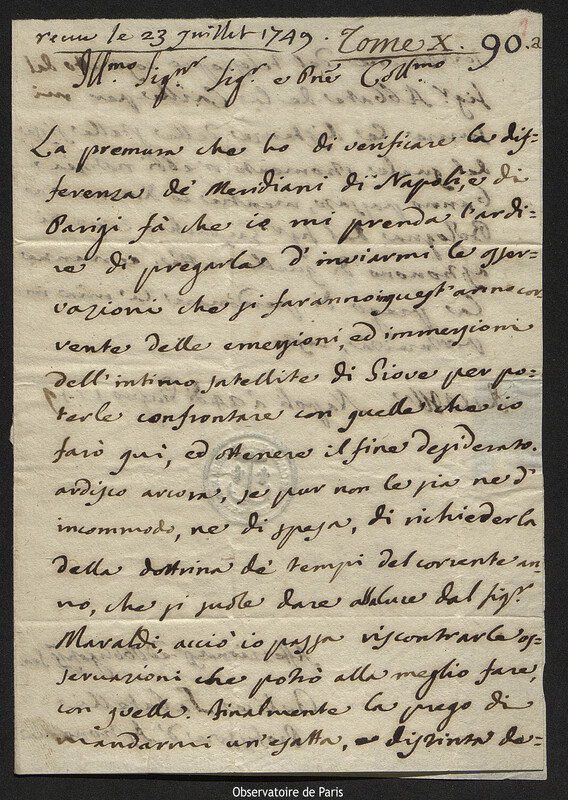 recu le 23 Juillet 1749. Tome X. 90.a
Ill.mo Sig.r Sig.r e Pne Coll.mo
La premura che ho di verificare la dif=
ferenza de' Meridiani di Napoli, e di
Parigi fà che io mi prenda l'ardi=
re di pregarla d'inviarmi le osser=
vazioni che si faranno in quest'anno cor=
rente delle emersioni, ed immersioni
dell'intimo satellite di Giove per po=
terle confrontare con quelle che io
farò qui, ed ottenere il fine desiderato.
ardisco ancora, se pur non le sia ne d'
incommodo, ne di spesa, di richiederla
della dottrina de' tempi del corrente an=
no, che si suole dare alla luce dal Sig.r
Maraldi, acciò io possa riscontrar le os=
servazioni che potrò alla meglio fare,
con quella. finalmente la prego di
mandarmi un'esatta, e distinta de=
Observatoire de Paris